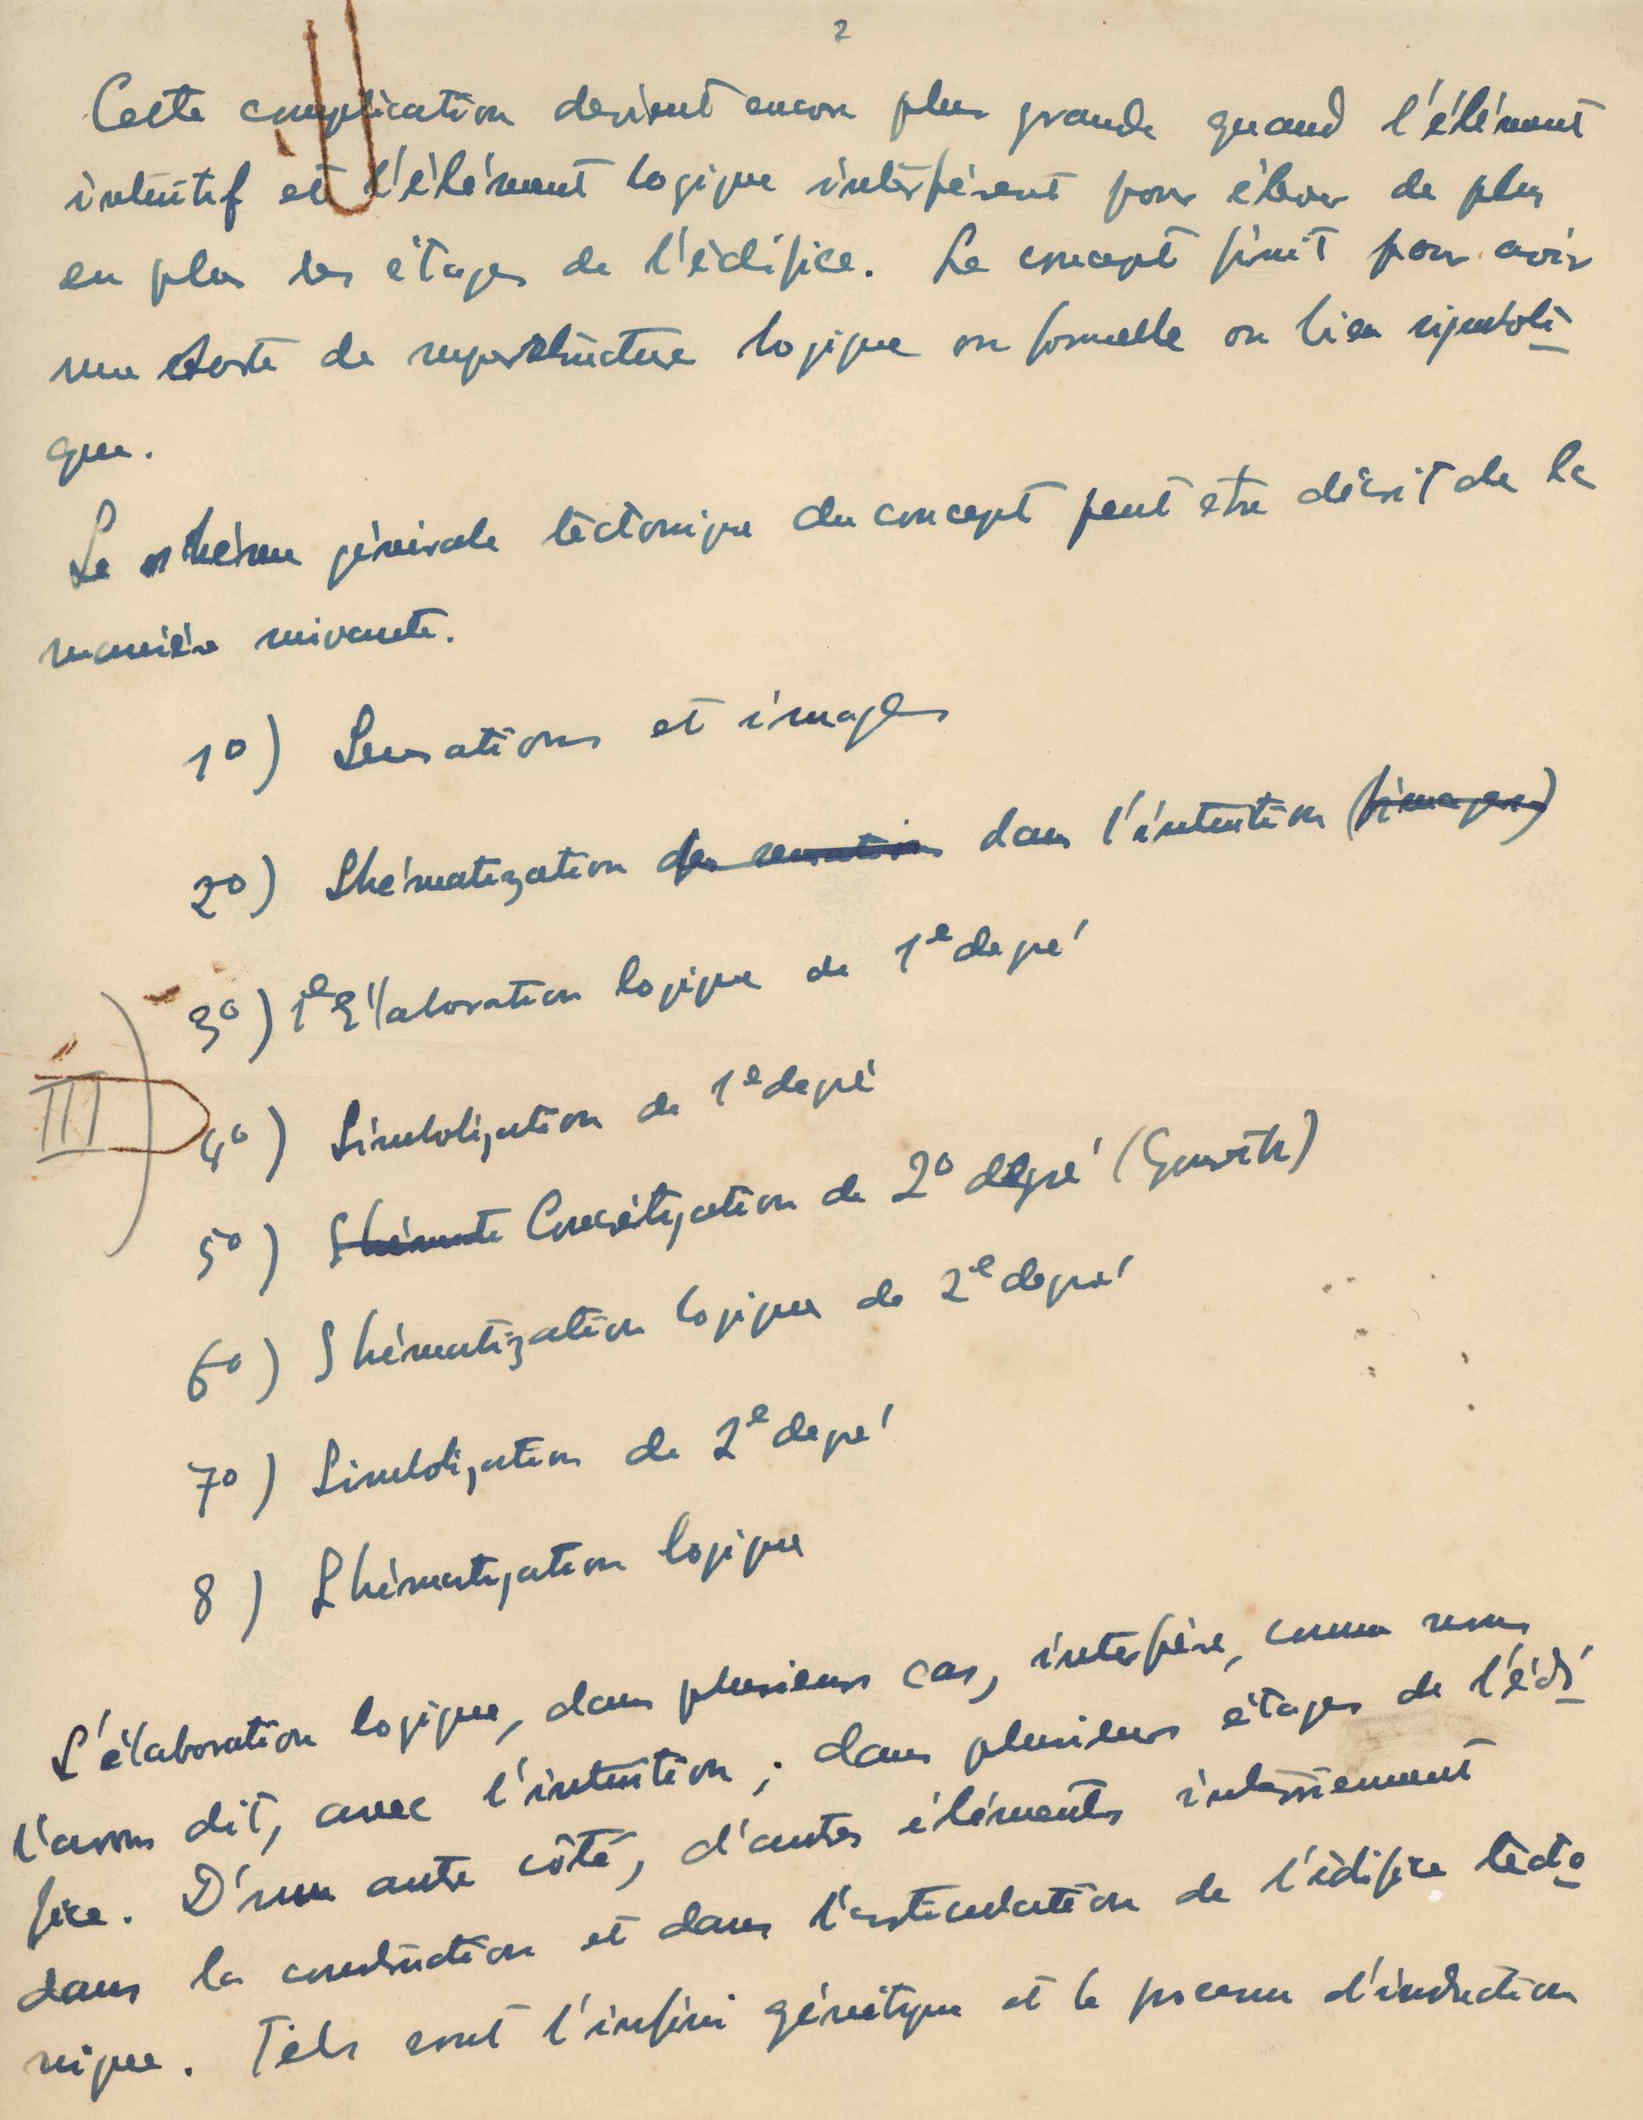 2
Cette complication devient encore plus grande quand l'élément
intuitif et l'élément logique interférent pour élever de plus
en plus les étages de l'édifice. Le concept finit pour avoir
une sorte de superstructure logique ou formelle ou bien simboli
que.
Le shéme générale téctonique du concept peut etre décrit de la
manière suivante.
1º) Sensations et images
2º) Shématization des sensations dans l'intuition (images)
3º) 1e Élaboration logique de 1e degré
III) 4º) Simbolization de 1e degré
5º) Shémate Concrétization de 2º degré
6º) Shématization logique de 2e degré
7º) Simbolization de 2e degré
8) Shématization logique
L'élaboration logique, dans plusieurs cas, interfère, comme nous
l'avons dit, avec l'intuition, dans plusieurs étages de l'édi
fice. D'une autre côté, d'autres éléments interviennent
dans la construction et dans l'articulation de l'édifice tècto
nique. Téls sont l'infini génétique et le processus d'induction